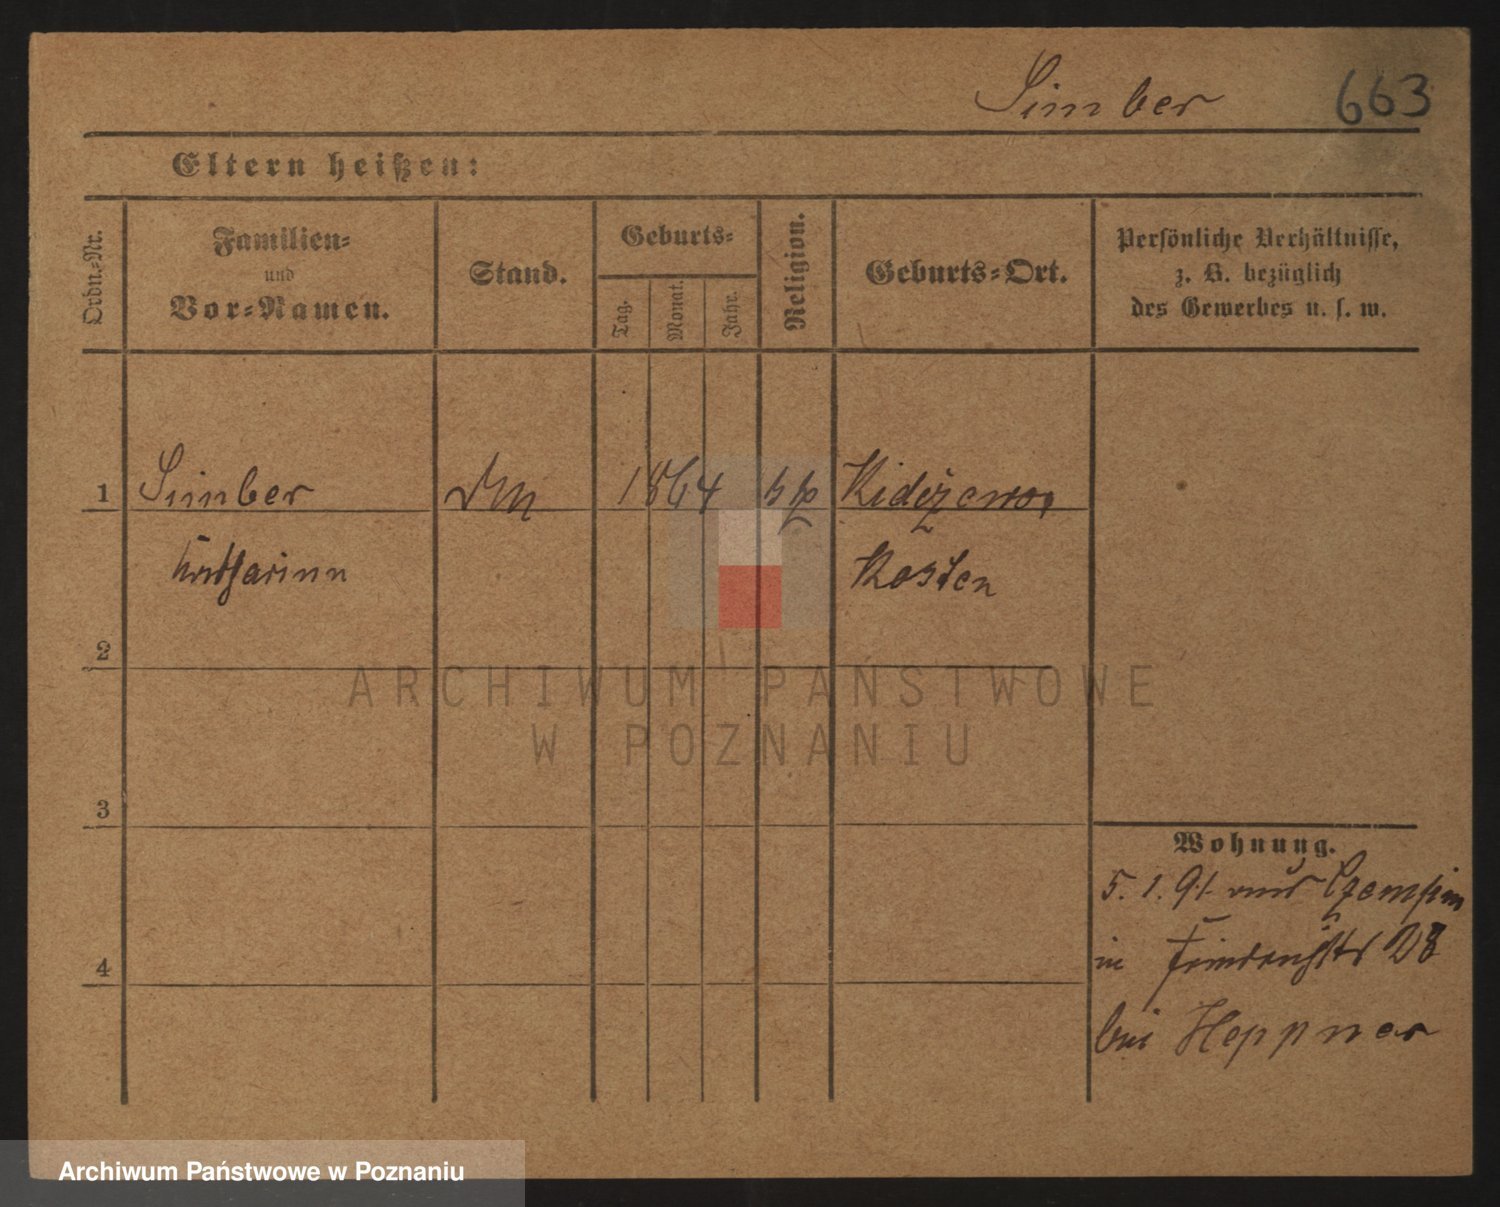 Simber 663
Eltern heißen:
Ordn.-Nr.
Familien-
und
Vor-Namen.
Stand.
Geburts-
Tag.
Monat.
Jahr.
Religion.
Geburts-Ort.
Persönliche Verhältnisse,
z. B. bezüglich
des Gewerbes u. s. w.
1 Simber 1864
Katharina Kosten
2
3
4
Wohnung.
5. 1. 91 aus Czempin
in 28
bei Heppner
ARCHIWUM PAŃSTWOWE
W POZNANIU
Archiwum Państwowe w Poznaniu